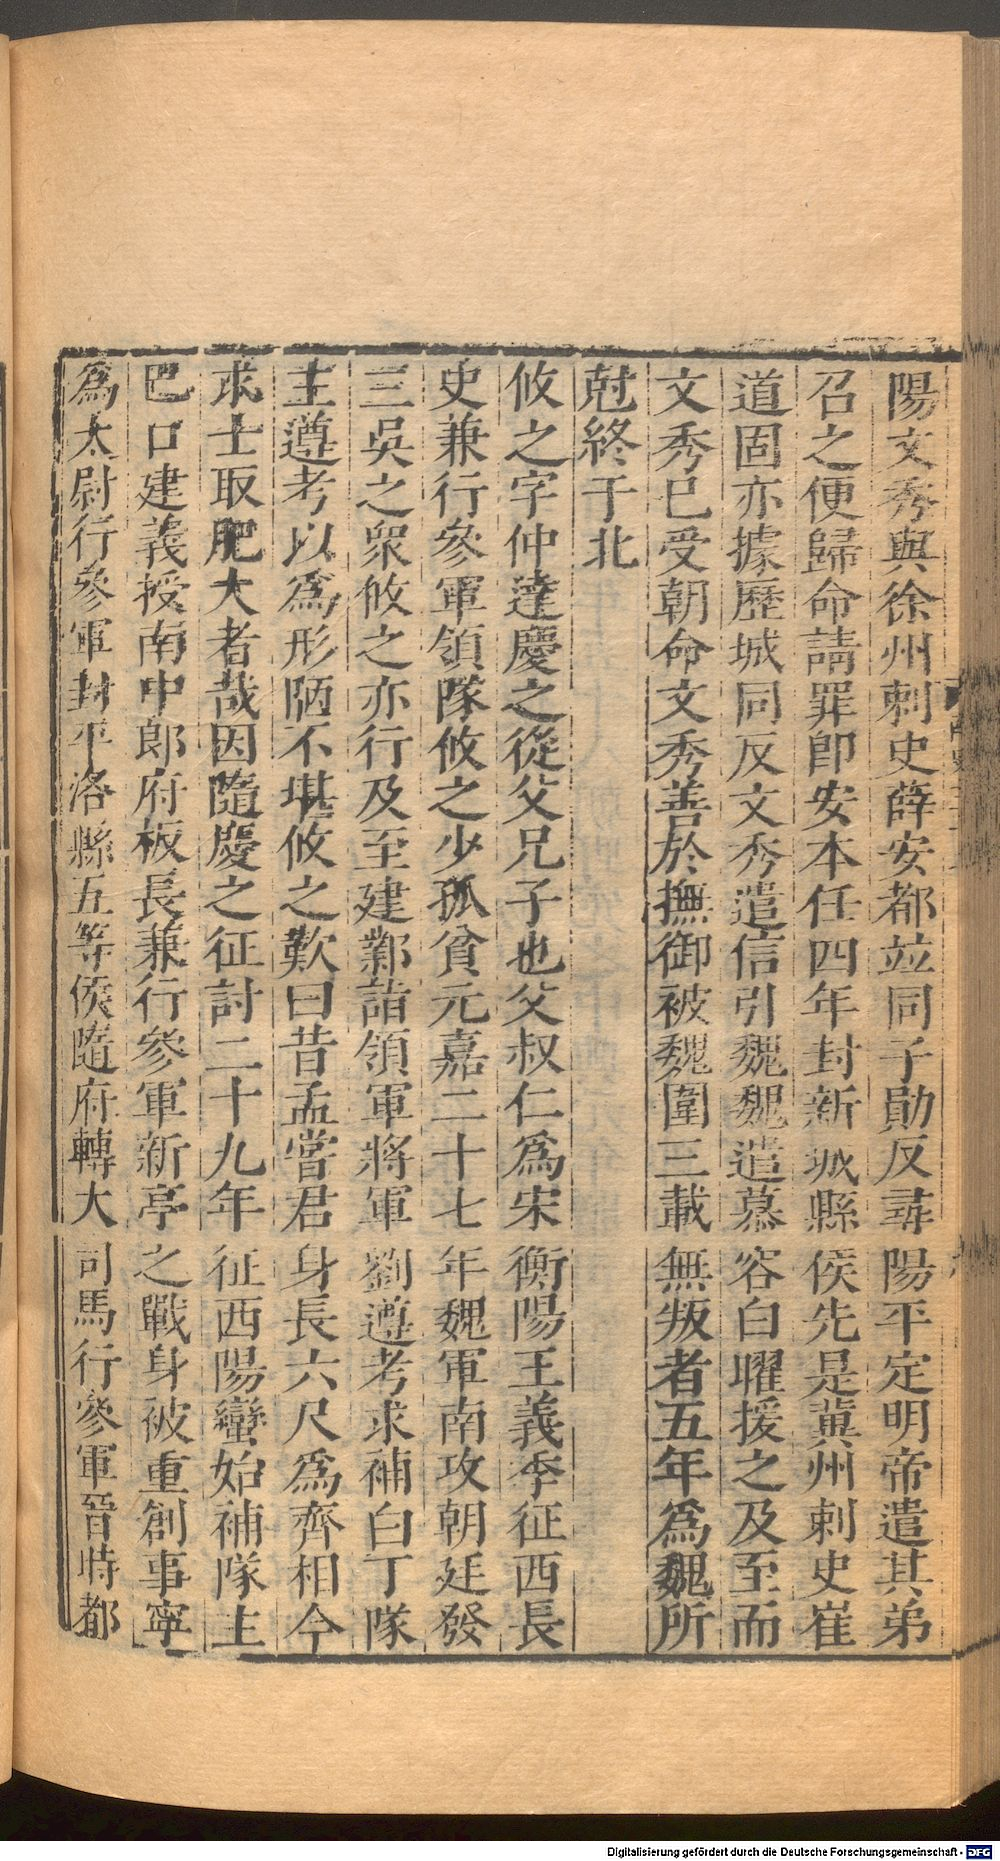 陽文秀與徐州刺史薛安都並同子勛反尋陽平定明帝遣其弟
召之便歸命請罪即安本任四年封新城縣侯先是冀州刺史崔
道固亦據歷城同反文秀遣信引魏魏遣慕容白曜援之及至而
文秀已受朝命文秀善於撫御被魏圍三載無叛者五年為魏所
尅終于北
攸之字仲達慶之從父兄子也父叔仁為宋衡陽王義季征西長
史兼行參軍領隊攸之少孤貧元嘉二十七年魏軍南攻朝廷發
三吳之衆攸之亦行及至建鄴詣領軍將軍劉遵考求補白丁隊
主遵考以為形陋不堪攸之歎曰昔孟嘗君身長六尺為齊相今
求士取肥大者哉因隨慶之征討二十九年征西陽蠻始補隊主
巴口建義授南中郎府板長兼行參軍新亭之戰身被重創事寧
為太尉行參軍封平洛縣五等侯隨府轉大司馬行參軍晉時都
Digitalisierung gefördert durch die Deutsche Forschungsgemeinschaft - DFG